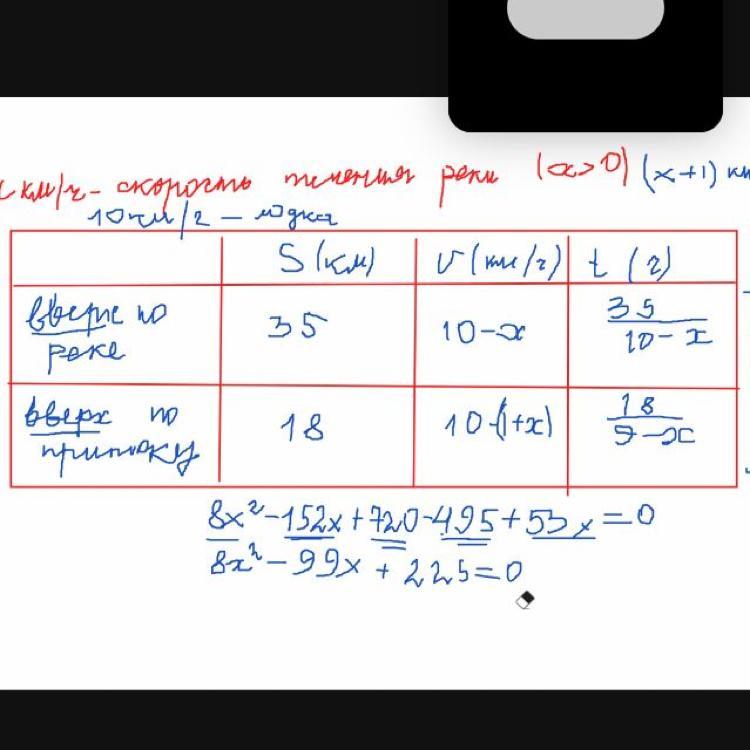 км/ч - скорость течения реки (x>0) (x+1) км
10 км/ч - лодка
S (км) V (км/ч) t (ч)
вверх по реке 35 10-x 35/10-x
вверх по притоку 18 10-(1+x) 18/9-x
8x²-152x+720-495+53x=0
8x²-99x+225=0